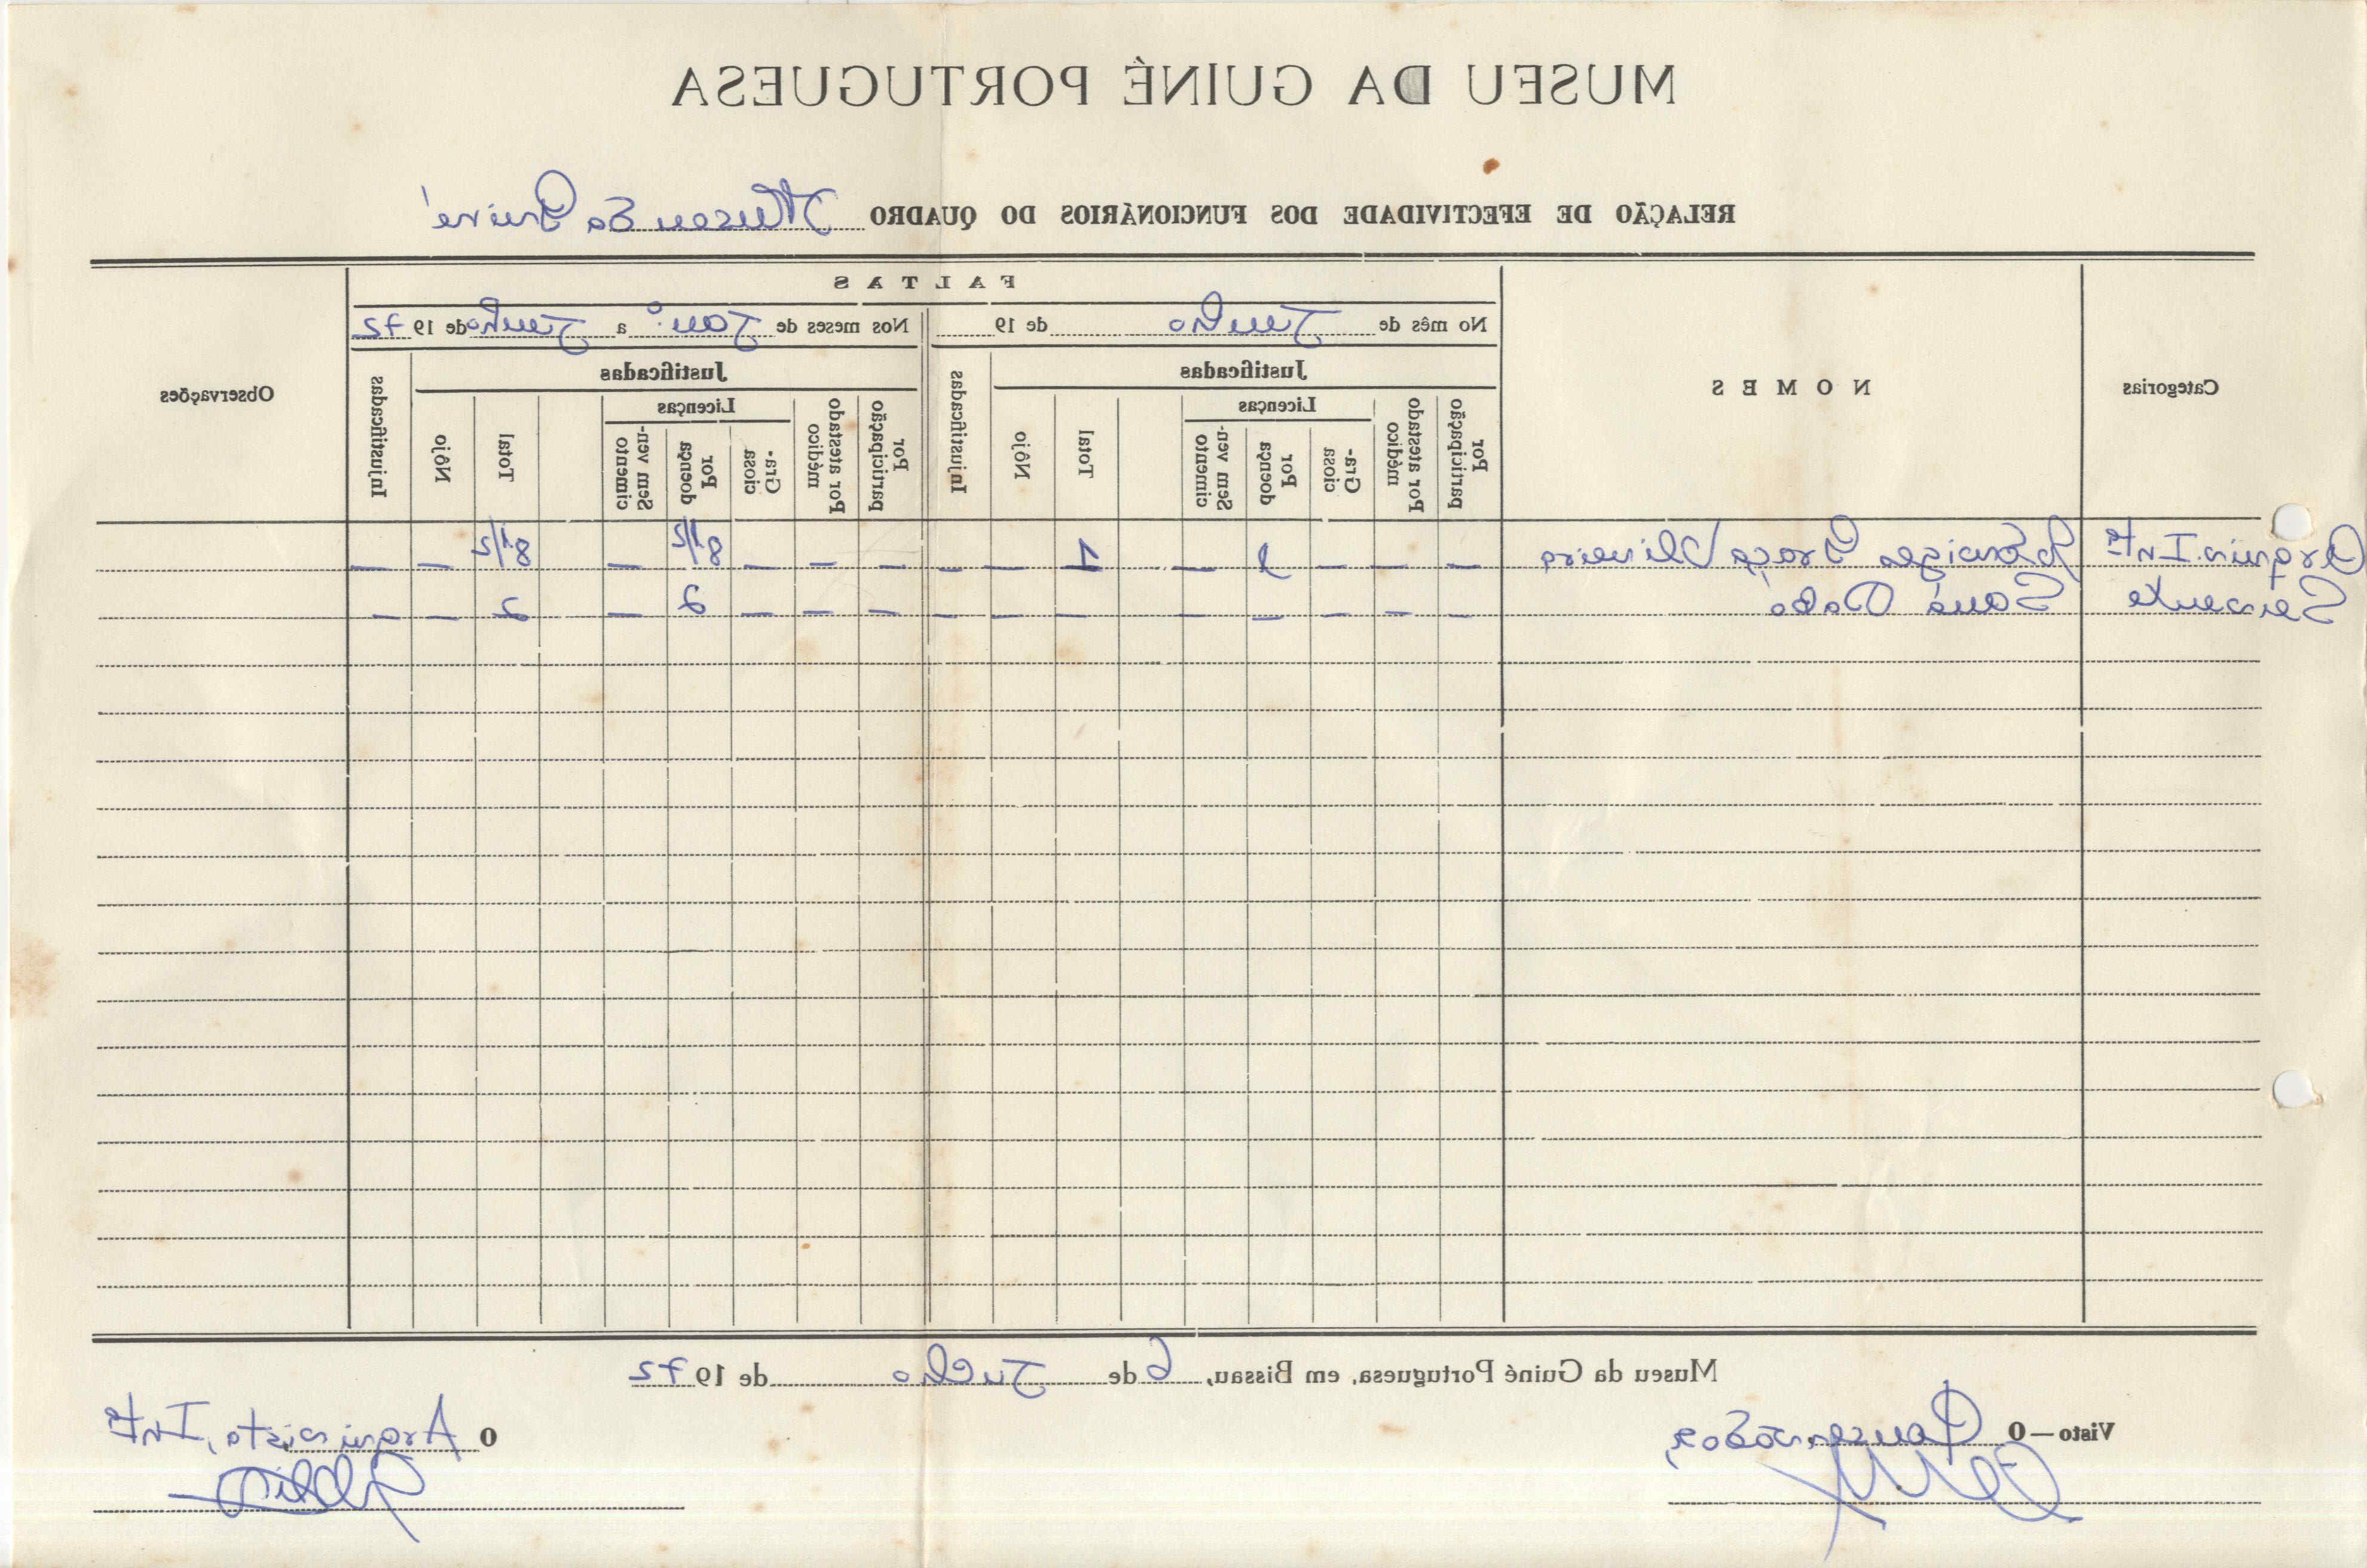 MUSEU DA GUINÉ PORTUGUESA
RELAÇÃO DE EFECTIVIDADE DOS FUNCIONÁRIOS DO QUADRO Museu da Guiné
Categorias
NOMES
FALTAS
No mês de Junho de 19
Nos meses de Jan.º a Junho de 1972
Justificadas
Injustificadas
Justificadas
Injustificadas
Observações
Por participação
Por atestado médico
Licenças
Graciosa
Por doença
Sem vencimento
Total
Nôjo
Por participação
Por atestado médico
Licenças
Graciosa
Por doença
Sem vencimento
Total
Nôjo
Graça Oliveira — — — 1 — 1 — — — — — 8 1/2 — 8 1/2 — —
Servente Saná Dabó — — — — — — — — — — — 2 — 2 — —
Museu da Guiné Portuguesa, em Bissau, 6 de Julho de 1972
Visto—O Conservador,
O Arquivista, Intº